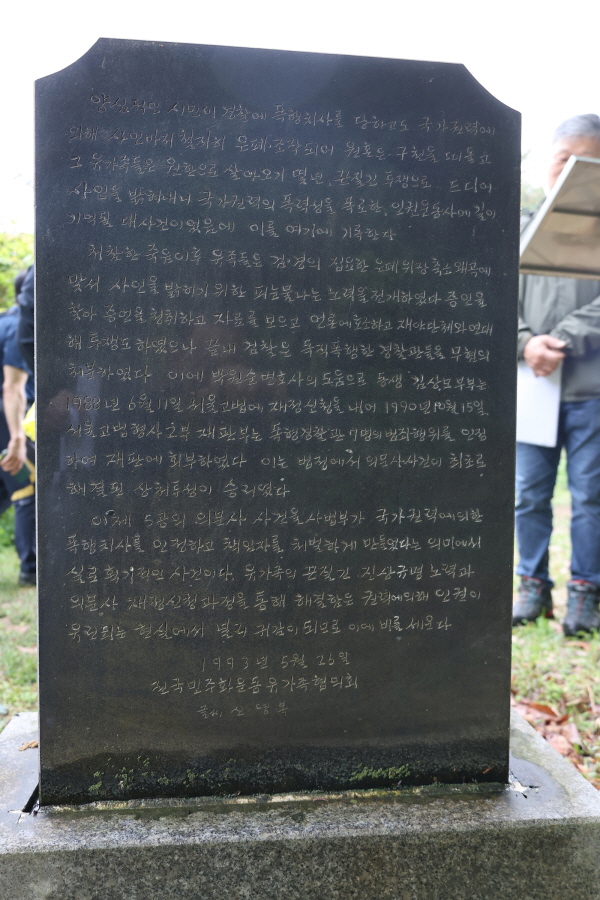 양심적인 시민이 경찰에 폭행치사를 당하고도 국가권력에
의해 사인마저 철저히 은폐·조작되어 원혼은 구천을 떠돌고
그 유가족들은 원한으로 살아오기 몇년, 끈질긴 투쟁으로 드디어
사인을 밝혀내니 국가권력의 폭력성을 폭로한, 인권운동사에 길이
기억될 대사건이었음에 이를 여기에 기록한다
처참한 죽음이후 유족들은 검·경의 집요한 은폐 위장 축소 왜곡에
맞서 사인을 밝히기 위한 피눈물나는 노력을 전개하였다 증인을
찾아 증언을 청취하고 자료를 모으고 언론에 호소하고 재야단체와 연대
해 투쟁도 하였으나 끝내 검찰은 독직폭행한 경찰관들을 무혐의
처분하였다 이에 박원순변호사의 도움으로 동생 김상모부부는
1988년 6월 11일 서울고법에 재정신청을 내어 1990년 10월 15일
서울고법형사 부 재판부는 폭행경찰관 7명의 범죄행위를 인정
하여 재판에 회부하였다 이는 법정에서 의문사사건이 최초로
해결된 상처투성이 승리였다
이제 5공의 의문사 사건을 사법부가 국가권력에의한
폭행치사를 인정하고 책임자를 처벌하게 만들었다는 의미에서
실로 획기적인 사건이다. 유가족의 끈질긴 진상규명 노력과
의문사 재정신청과정을 통해 해결함은 권력에의해 인권이
유린되는 현실에서 널리 귀감이 되므로 이에 비를 세운다
1993년 5월 26일
전국민주화운동유가족협의회
글씨, 신영복